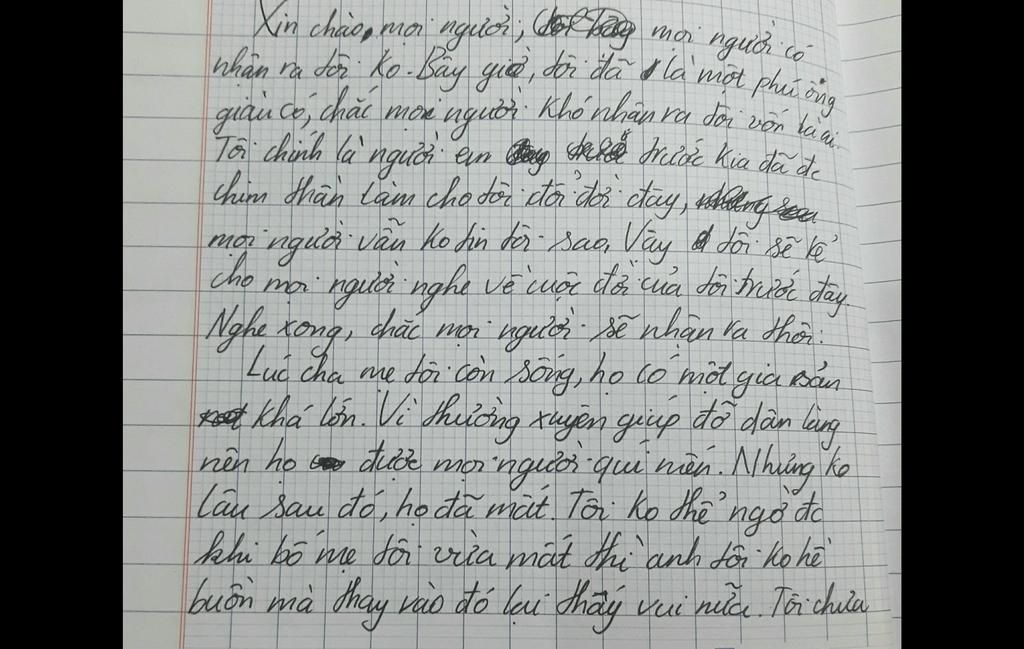 Xin chào, mọi người, mọi người có
nhận ra tôi ko. Bây giờ, tôi đã là một phú ông
giàu có, chắc mọi người khó nhận ra tôi vốn là ai.
Tôi chính là người em trước kia đã đc
chim thần làm cho tôi đổi đời đây,
mọi người vẫn ko tin tôi sao, Vậy tôi sẽ kể
cho mọi người nghe về cuộc đời của tôi trước đây.
Nghe xong, chắc mọi người sẽ nhận ra thôi.
Lúc cha mẹ tôi còn sống, họ có một gia sản
khá lớn. Vì thường xuyên giúp đỡ dân làng
nên họ được mọi người quí mến. Nhưng ko
lâu sau đó, họ đã mất. Tôi ko thể ngờ đc
khi bố mẹ tôi vừa mất thì anh tôi ko hề
buồn mà thay vào đó lại thấy vui nữa. Tôi chưa